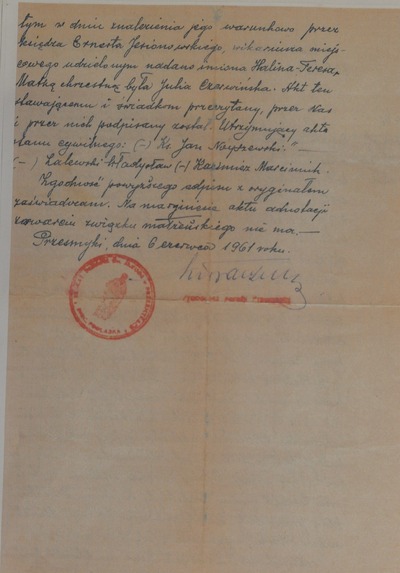 tym w dniu znalezienia jego warunkowo przez
księdza Ernesta Jesionowskiego, wikariusza miejs-
cowego udzielonym nadano imiona Halina-Teresa,
Matką chrzestną była Julia Czerwińska. Akt ten
stawającemu i świadkom przeczytany, przez Nas
i przez nich podpisany został. Utrzymujący akta
stanu cywilnego: (-) Ks. Jan
(-) Zalewski Władysław (-) Kazimierz
Zgodność powyższego odpisu z oryginałem
zaświadczam. Na marginesie aktu adnotacji
zawarciu związku małżeńskiego nie ma.—
Przesmyki, dnia 6 czerwca 1961 roku.